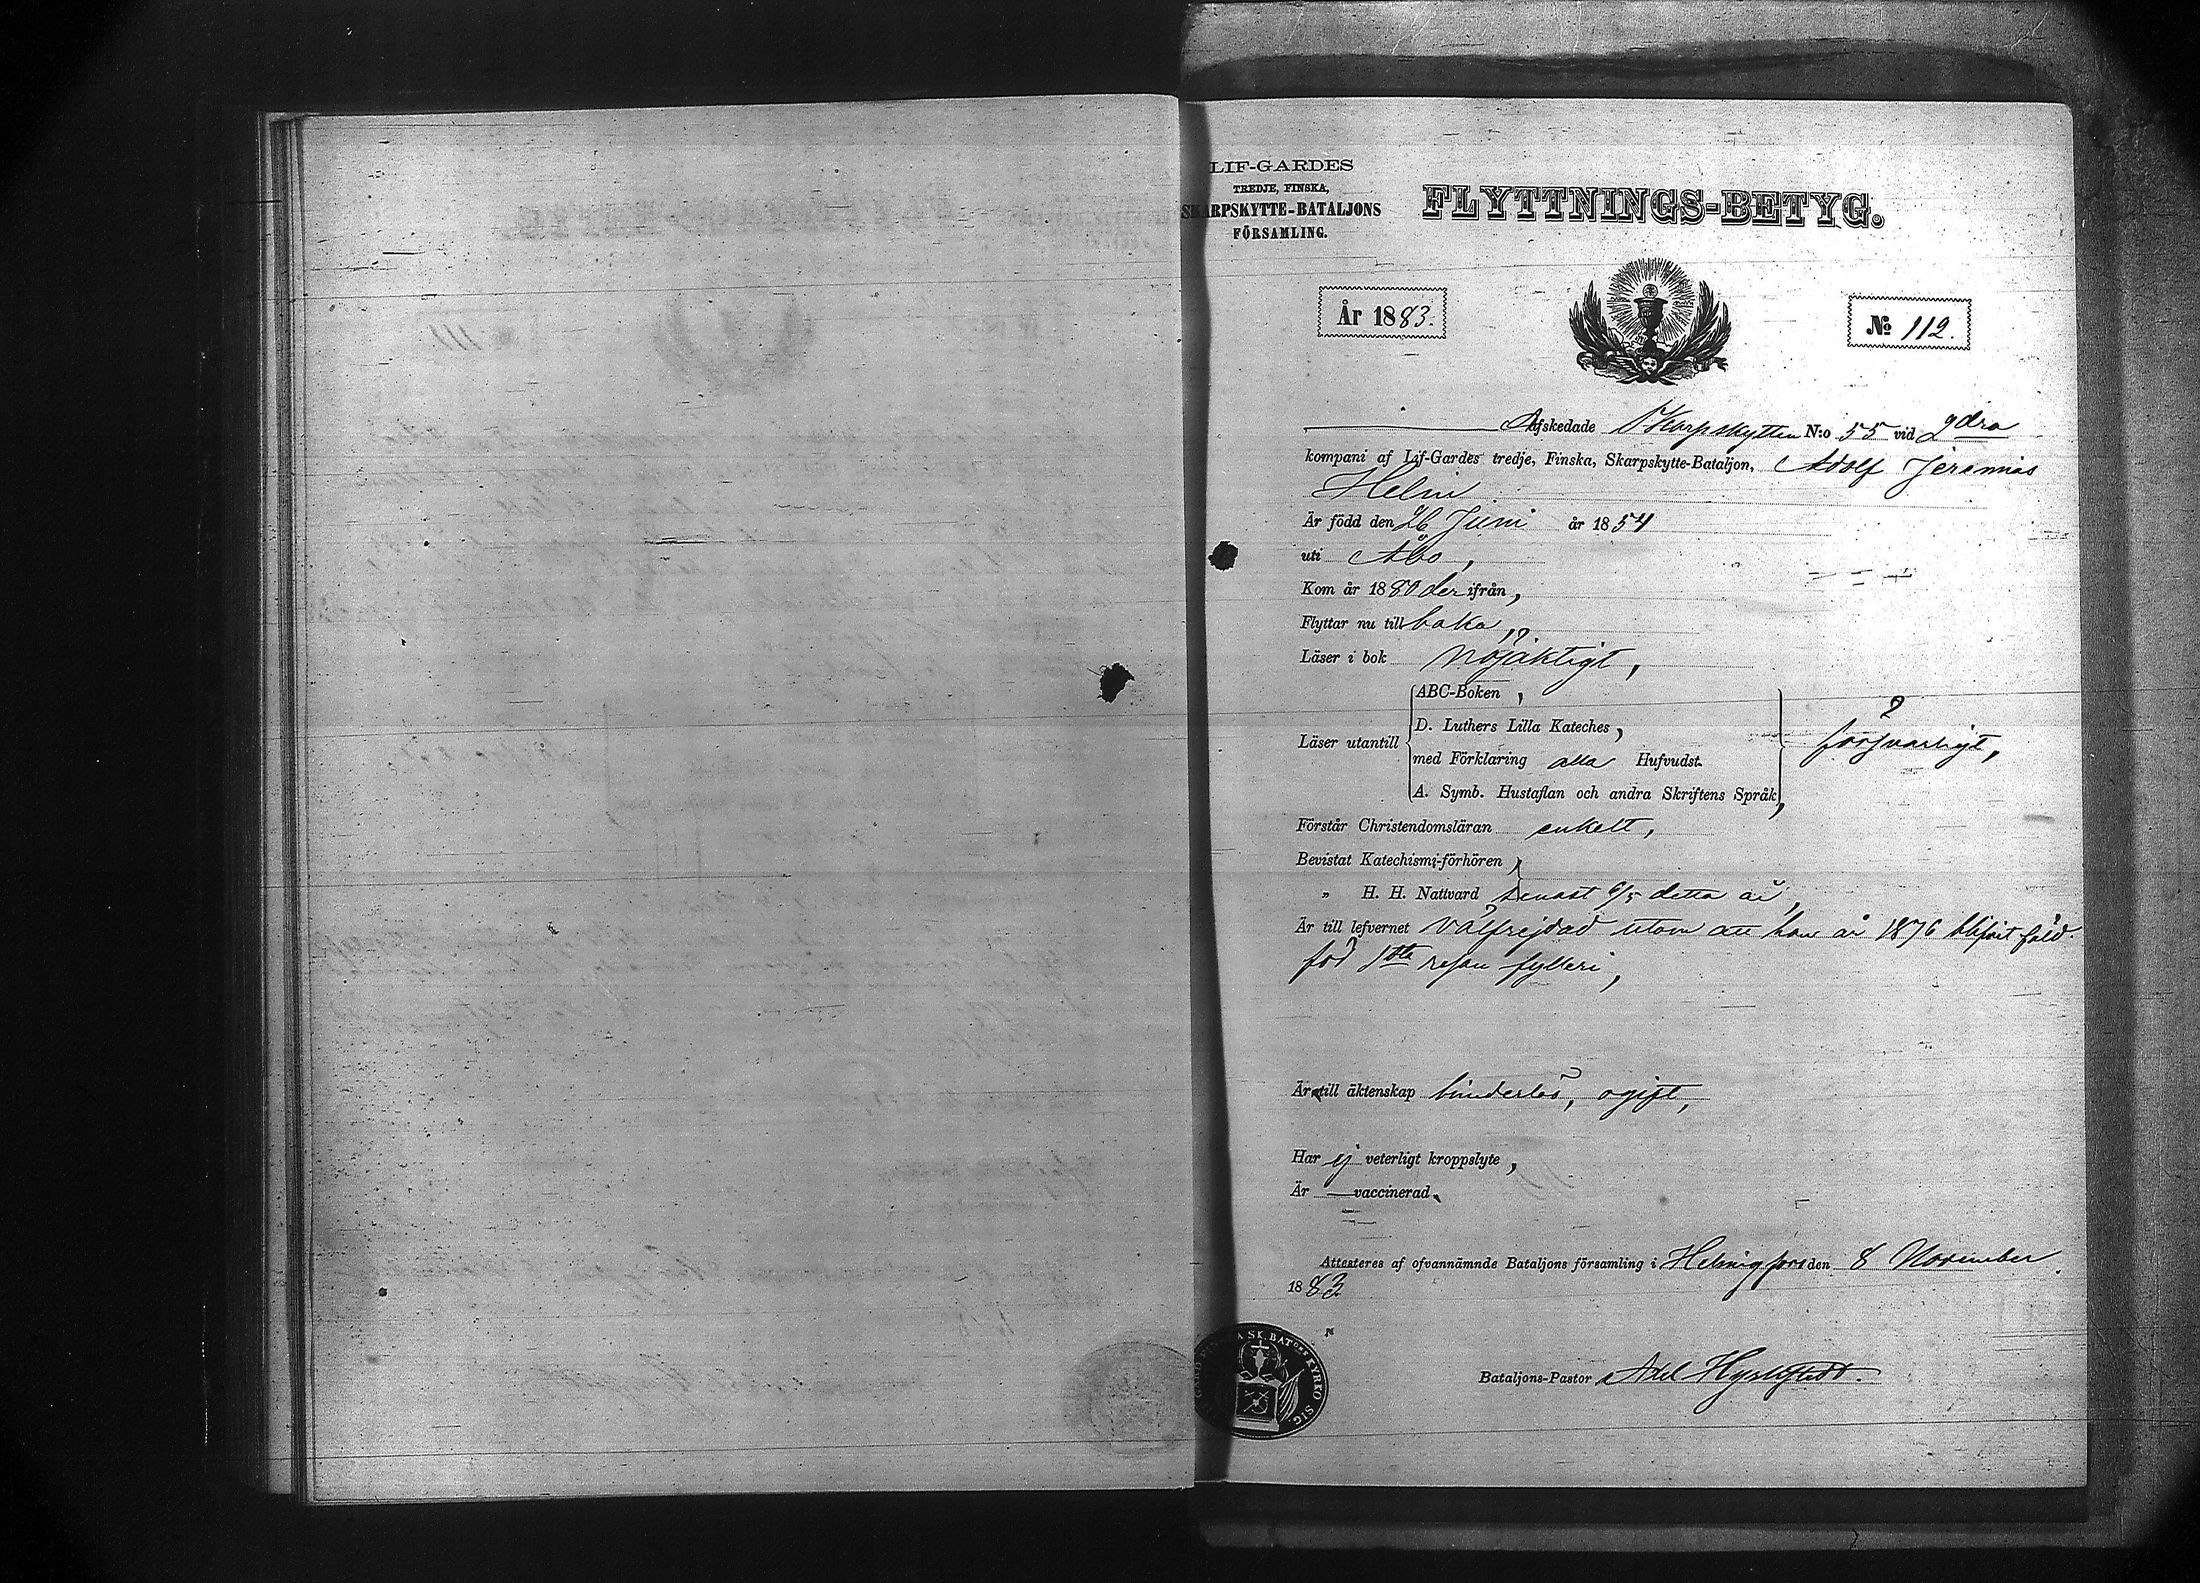 LIF-GARDES
TREDJE, FINSKA,
SKARPSKYTTE-BATALJONS
FÖRSAMLING.
FLYTTNINGS-BETYG.
År 1883.
No 112.
Afskedade Skarpskytten N:o 55 vid 2dra
kompani af Lif-Gardes tredje, Finska, Skarpskytte-Bataljon, Adolf Jeremias
Helin
Är född den 26 Juni år 1854
uti Åbo,
Kom år 1880 der ifrån,
Flyttar nu till baka,
Läser i bok nöjaktigt,
Läser utantill
ABC-Boken,
D. Luthers Lilla Kateches,
med Förklaring alla Hufvudst.
A. Symb. Hustaflan och andra Skriftens Språk,
försvarligt,
Förstår Christendomsläran enkelt,
Bevistat Katechismi-förhören,
„ H. H. Nattvard senast 6/5 detta år,
Är till lefvernet välfrejdad utom att han år 1876 blifvit fäld
för 1sta resan fylleri,
Är till äktenskap hinderlös, ogift,
Har ej veterligt kroppslyte,
Är — vaccinerad.
Attesteras af ofvannämnde Bataljons församling i Helsingfors den 8 November
1883
SK. BATONS KYRKO SIG.
Bataljons-Pastor Axel
111